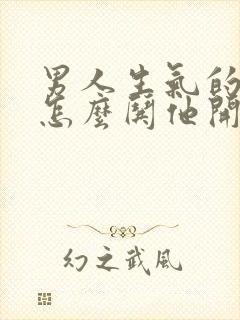 男人生氣的
怎麼鬨他開
幻之武風